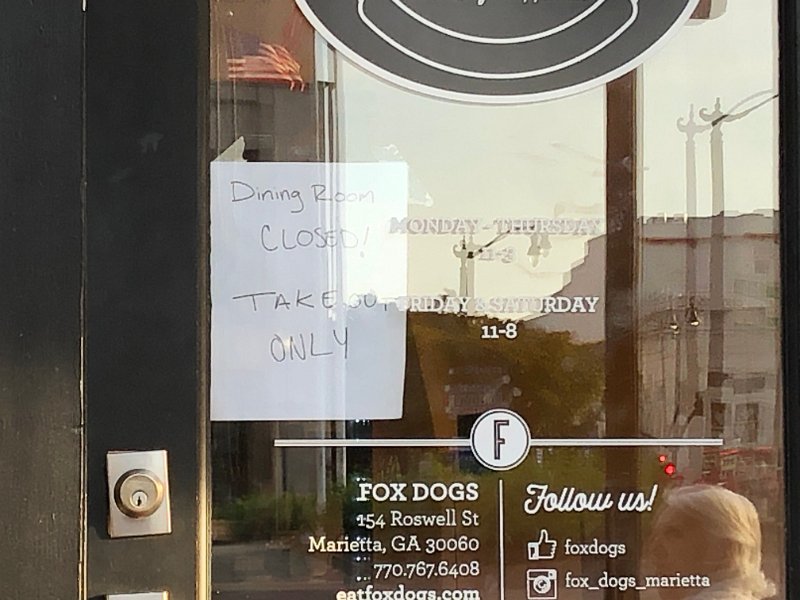 Dining Room
CLOSED!
TAKE OUT
ONLY
MONDAY - THURSDAY
11-3
FRIDAY & SATURDAY
11-8
F
FOX DOGS
154 Roswell St
Marietta, GA 30060
770.767.6408
eatfoxdogs.com
Follow us!
foxdogs
fox_dogs_marietta